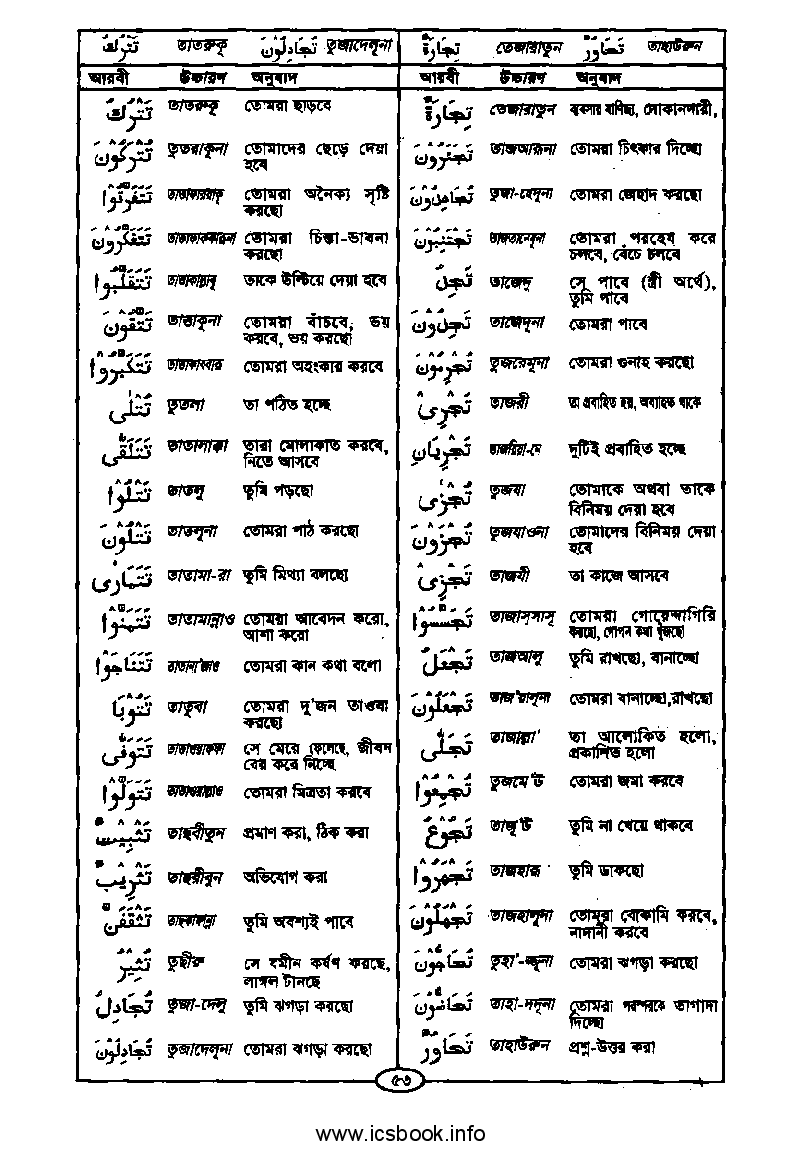 تَتْرُكُ তাতরুকু تُجَادِلُوْنَ তুজাদেলূনা
আরবী উচ্চারণ অনুবাদ
تَتْرُكُ তাতরুকু তোমরা ছাড়বে
تُتْرَكُوْنَ তুতরাকূনা তোমাদের ছেড়ে দেয়া
হবে
تَتَفَرَّقُوْا তোমরা অনৈক্য সৃষ্টি
করছো
تَتَفَكَّرُوْنَ তোমরা চিন্তা-ভাবনা
করছো
تَتَقَلَّبُوْا তাকে উল্টিয়ে দেয়া হবে
تَتَّقُوْنَ তাত্তাকূনা তোমরা বাঁচবে, ভয়
করবে, ভয় করছো
تَتَكَبَّرُوْا তোমরা অহংকার করবে
تُتْلٰى তুতলা তা পঠিত হচ্ছে
تَتَلَقّٰى তাতালাক্কা তারা মোলাকাত করবে,
নিতে আসবে
تَتْلُوْا তাতলু তুমি পড়ছো
تَتْلُوْنَ তাতলূনা তোমরা পাঠ করছো
تَتَمَارٰى তাতামা-রা তুমি মিথ্যা বলছো
تَتَمَنَّوْا তাতামান্নাও তোমরা আবেদন করো,
আশা করো
تَتَنَاجَوْا তোমরা কান কথা বলো
تَتُوْبَا তাতূবা তোমরা দু'জন তাওবা
করছো
تَتَوَفّٰى সে মেরে ফেলেছে, জীবন
বের করে নিচ্ছে
تَتَوَلَّوْا তোমরা মিত্রতা করবে
تَثْبِيْتٌ তাছবীতুন প্রমাণ করা, ঠিক করা
تَثْرِيْبٌ তাছরীবুন অভিযোগ করা
تَثْقَفَنَّ তুমি অবশ্যই পাবে
تُثِيْرُ তুছীরু সে যমীন কর্ষণ করছে,
লাঙ্গল টানছে
تُجَادِلُ তুজা-দেলু তুমি ঝগড়া করছো
تُجَادِلُوْنَ তুজাদেলূনা তোমরা ঝগড়া করছো
تِجَارَةٌ তেজারাতুন تَحَاوُرٌ তাহাউরুন
আরবী উচ্চারণ অনুবাদ
تِجَارَةٌ তেজারাতুন ব্যবসায় বাণিজ্য, দোকানদারী,
تَجْئَرُوْنَ তাজআরূনা তোমরা চিৎকার দিচ্ছো
تُجَاهِدُوْنَ তুজা-হেদূনা তোমরা জেহাদ করছো
تَجْتَنِبُوْنَ তাজতানেবূনা তোমরা পরহেয করে
চলবে, বেঁচে চলবে
تَجِدُ তাজেদু সে পাবে (স্ত্রী অর্থে),
তুমি পাবে
تَجِدُوْنَ তাজেদূনা তোমরা পাবে
تُجْرِمُوْنَ তুজরেমূনা তোমরা গুনাহ করছো
تَجْرِىْ তাজরী তা প্রবাহিত হয়, অব্যাহত থাকে
تَجْرِيَانِ তাজরিয়া-নে দুটিই প্রবাহিত হচ্ছে
تُجْزٰى তুজযা তোমাকে অথবা তাকে
বিনিময় দেয়া হবে
تُجْزَوْنَ তুজযাওনা তোমাদের বিনিময় দেয়া
হবে
تَجْزِىْ তাজযী তা কাজে আসবে
تَجَسَّسُوْا তাজাস্সাসূ তোমরা গোয়েন্দাগিরি
করছো, গোপন কথা খুঁজছো
تَجْعَلُ তাজআলু তুমি রাখছো, বানাচ্ছো
تَجْعَلُوْنَ তাজ'আলূনা তোমরা বানাচ্ছো,রাখছো
تَجَلّٰى তাজাল্লা' তা আলোকিত হলো,
প্রকাশিত হলো
تُجْمِعُوْا তুজমে'উ তোমরা জমা করবে
تَجُوْعُ তাজূ'উ তুমি না খেয়ে থাকবে
تَجْهَرُوْا তাজহারূ তুমি ডাকছো
تَجْهَلُوْنَ তাজহালূনা তোমরা বোকামি করবে,
নাদানী করবে
تُحَاجُّوْنَ তুহা'-জ্জূনা তোমরা ঝগড়া করছো
تَحَاضُّوْنَ তাহা-দদূনা তোমরা পরস্পরকে তাগাদা
দিচ্ছো
تَحَاوُرٌ তাহাউরুন প্রশ্ন-উত্তর করা
৫৩
www.icsbook.info